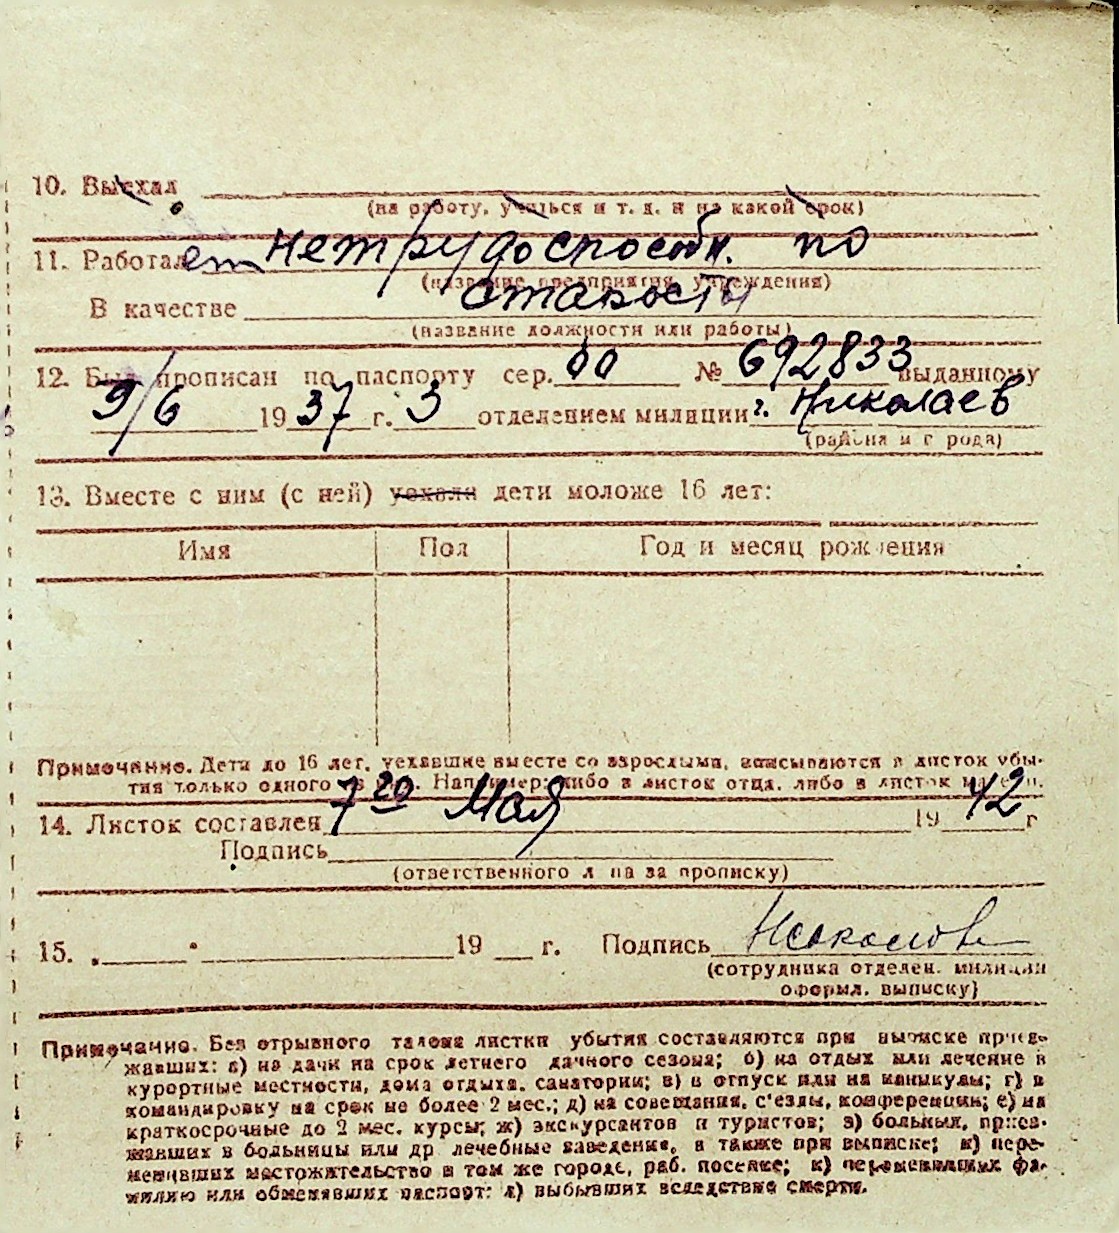 10. Выехал
(на работу, учиться и т. д. и на какой срок)
11. Работает нетрудоспособн. по
(название предприятия, учреждения)
старости
В качестве
(название должности или работы)
12. Был прописан по паспорту сер. 00 № 692833 выданному
9/6 1937 г. 3 отделением милиции г. Николаев
(района и города)
13. Вместе с ним (с ней) уехали дети моложе 16 лет:
Имя Пол Год и месяц рождения
Примечание. Дети до 16 лет, уехавшие вместе со взрослыми, вписываются в листок убы-
тия только одного из них. Например: либо в листок отца, либо в листок матери.
14. Листок составлен 7го Мая 1942 г
Подпись
(ответственного лица за прописку)
15. 19 г. Подпись
(сотрудника отделен. милиции
оформл. выписку)
Примечание. Без отрывного талона листки убытия составляются при выписке приез-
жавших: а) на дачи на срок летнего дачного сезона; б) на отдых или лечение в
курортные местности, дома отдыха, санатории; в) в отпуск или на каникулы; г) в
командировку на срок не более 2 мес.; д) на совещания, с'езды, конференции; е) на
краткосрочные до 2 мес. курсы; ж) экскурсантов и туристов; з) больных, приез-
жавших в больницы или др лечебные заведения, а также при выписке; и) пере-
менивших местожительство в том же городе, раб. поселке; к) переменивших фа-
милию или обменявших паспорт; л) выбывших вследствие смерти.